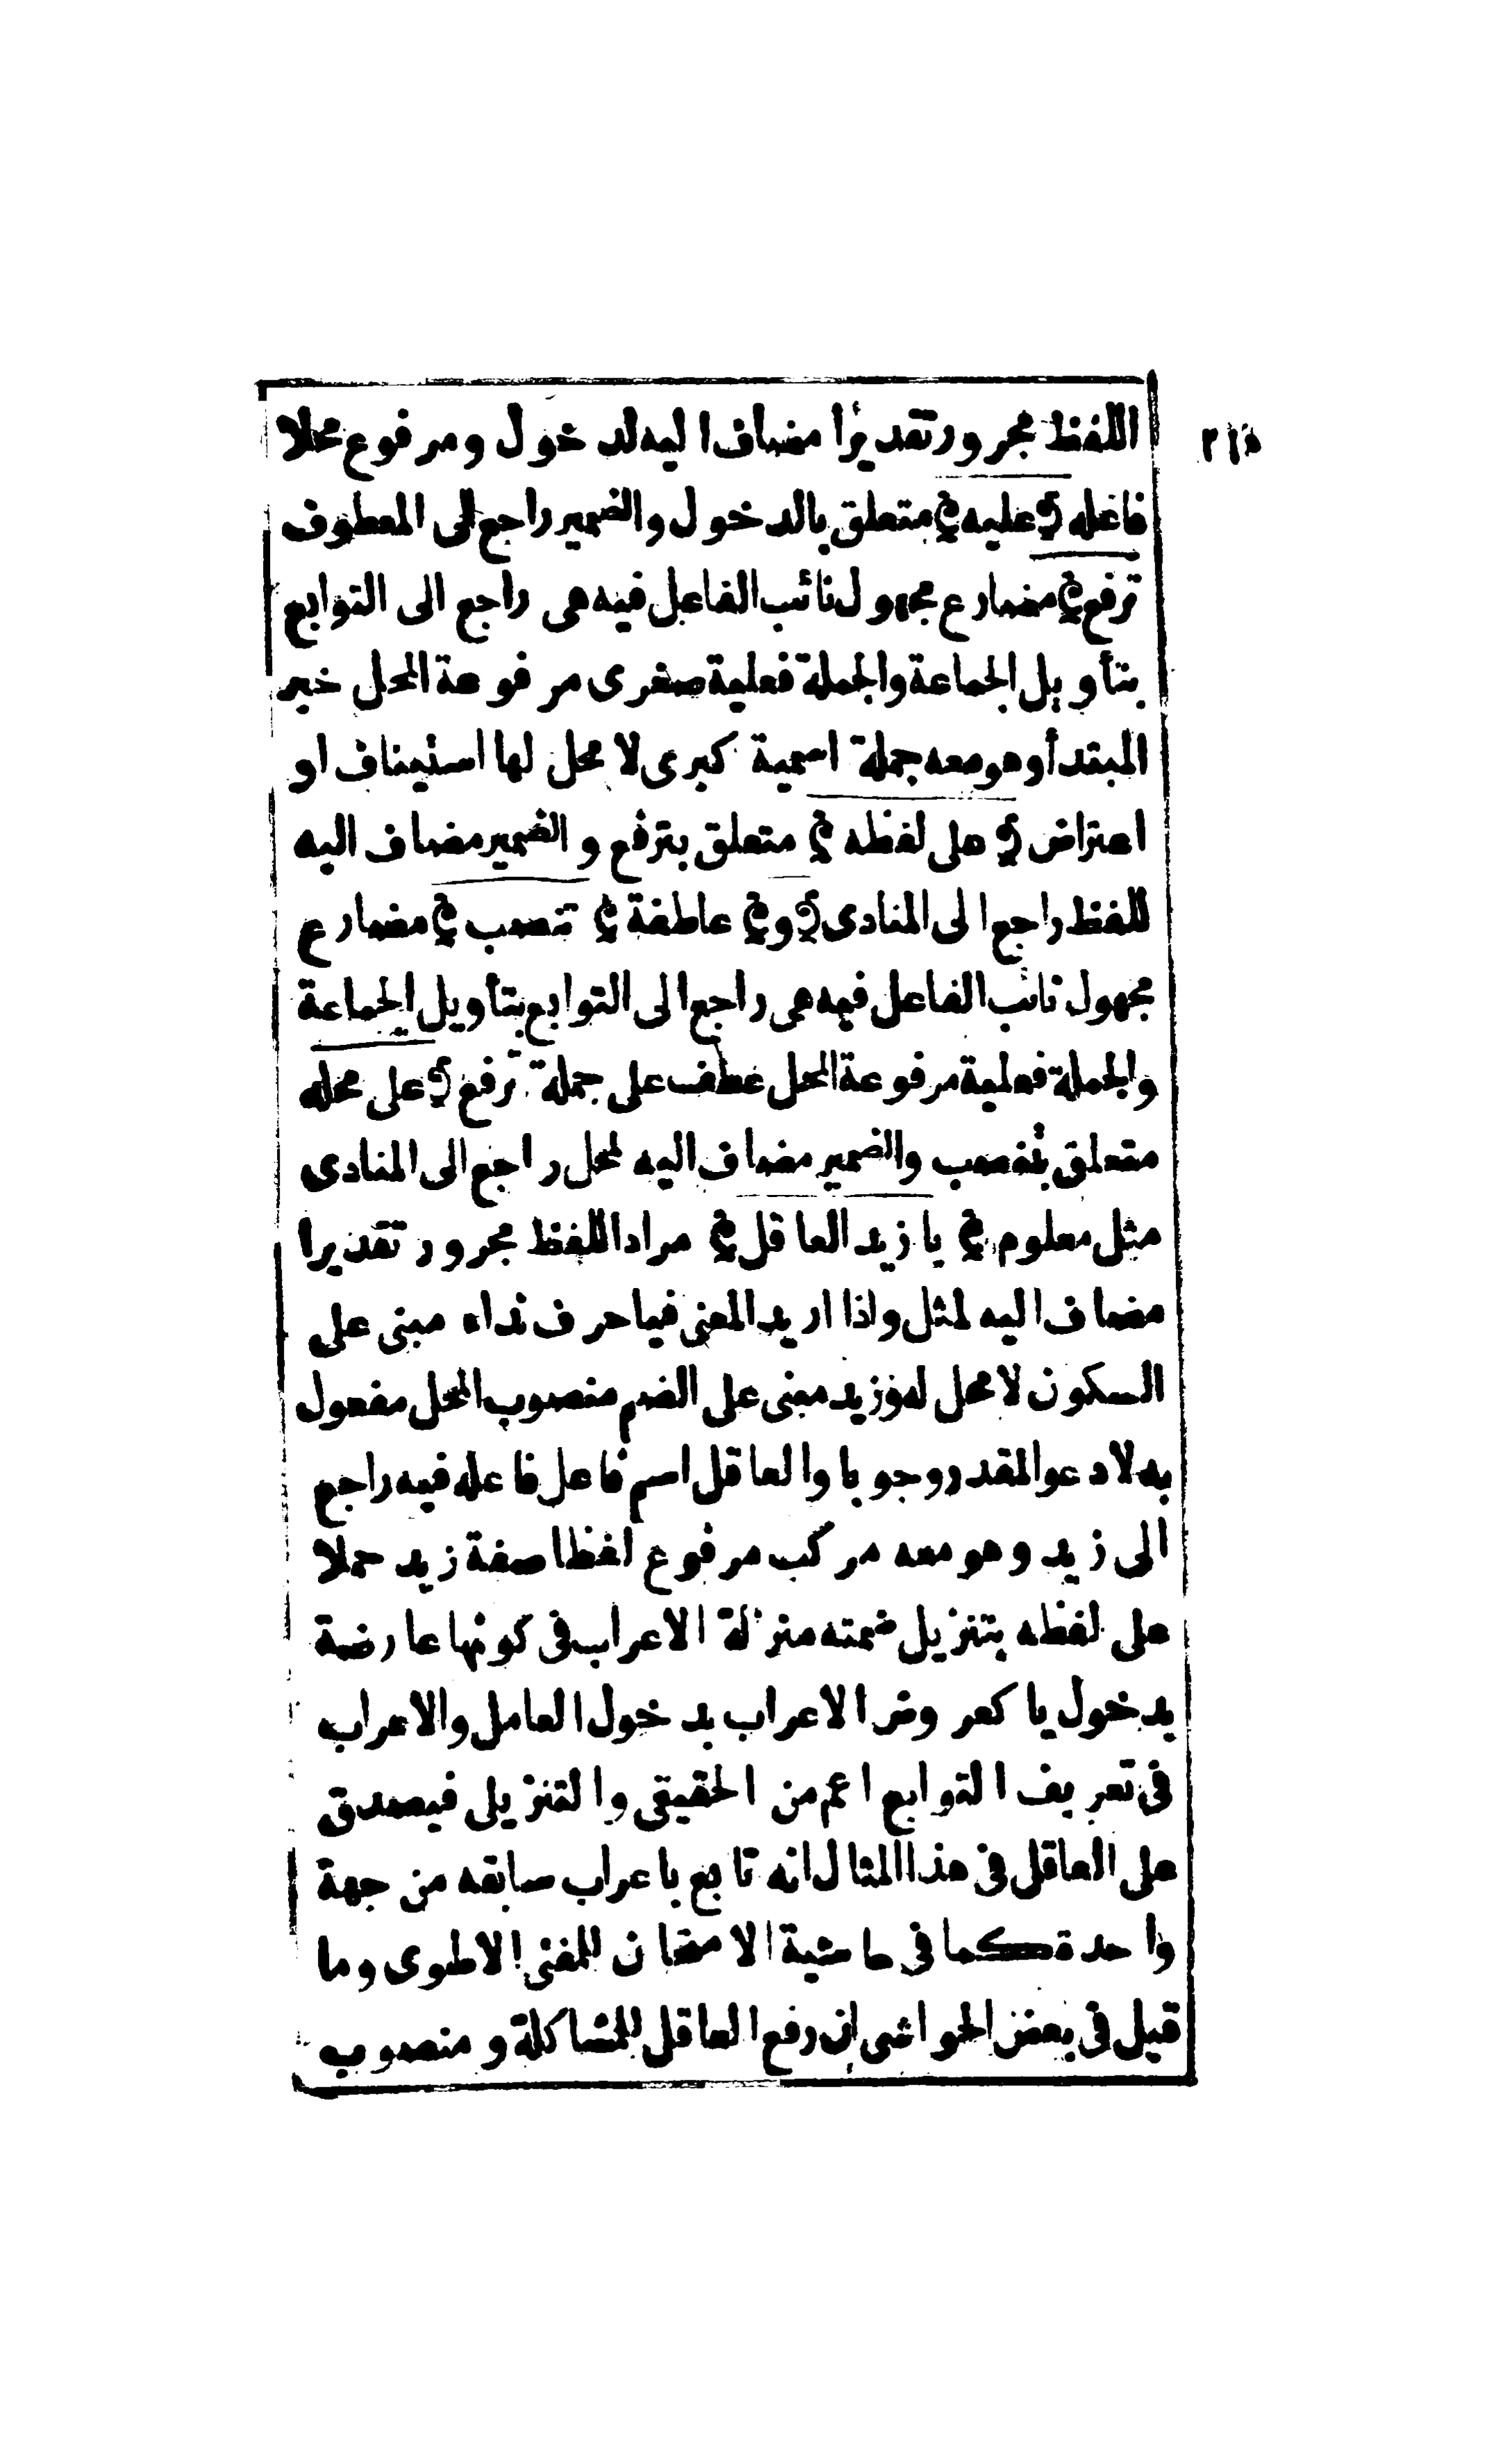 اللفظ مجرور تقديرا مضاف اليه لدخول ومرفوع محلا
فاعله ﴿ عليه ﴾ متعلق بالدخول والضمير راجع الى المعطوف
ترفع ﴾ مضارع مجهول نائب الفاعل فيه هى راجع الى التوابع
بتأويل الجماعة والجملة فعلية صغرى مرفوعة المحل خبر
المبتدأ وهو معه جملة اسمية كبرى لا محل لها استيناف او
اعتراض ﴿ على لفظه ﴾ متعلق بترفع و الضمير مضاف اليه
للفظ راجع الى المنادى ﴿ و ﴾ عاطفة ﴾ تنصب ﴾ مضارع
مجهول نائب الفاعل فيه هى راجع الى التوابع بتأويل الجماعة
والجملة فعلية مرفوعة المحل عطف على جملة ترفع ﴿ على محله
متعلق بتنصب والضمير مضاف اليه لمحل راجع الى المنادى
مثل معلوم ﴾ يا زيد العاقل ﴾ مراد اللفظ مجرور تقديرا
مضاف اليه لمثل واذا اريد المعنى فيا حرف نداء مبنى على
السكون لا محل له وزيد مبنى على الضم منصوب المحل مفعول
به لادعو المقدر وجوبا والعاقل اسم فاعل فاعله فيه راجع
الى زيد وهو معه مركب مرفوع لفظا صفة زيد حملا
على لفظه بتنزيل ضمته منزلة الاعراب فى كونها عارضة
بدخول يا كعروض الاعراب بدخول العامل والاعراب
فى تعريف التوابع اعم من الحقيقى والتنزيلى فيصدق
على العاقل فى هذا المثال انه تابع باعراب سابقه من جهة
واحدة كما فى حاشية الامتحان للمفتى الاطوى وما
قيل فى بعض الحواشى ان رفع العاقل للمشاكلة ومنصوب